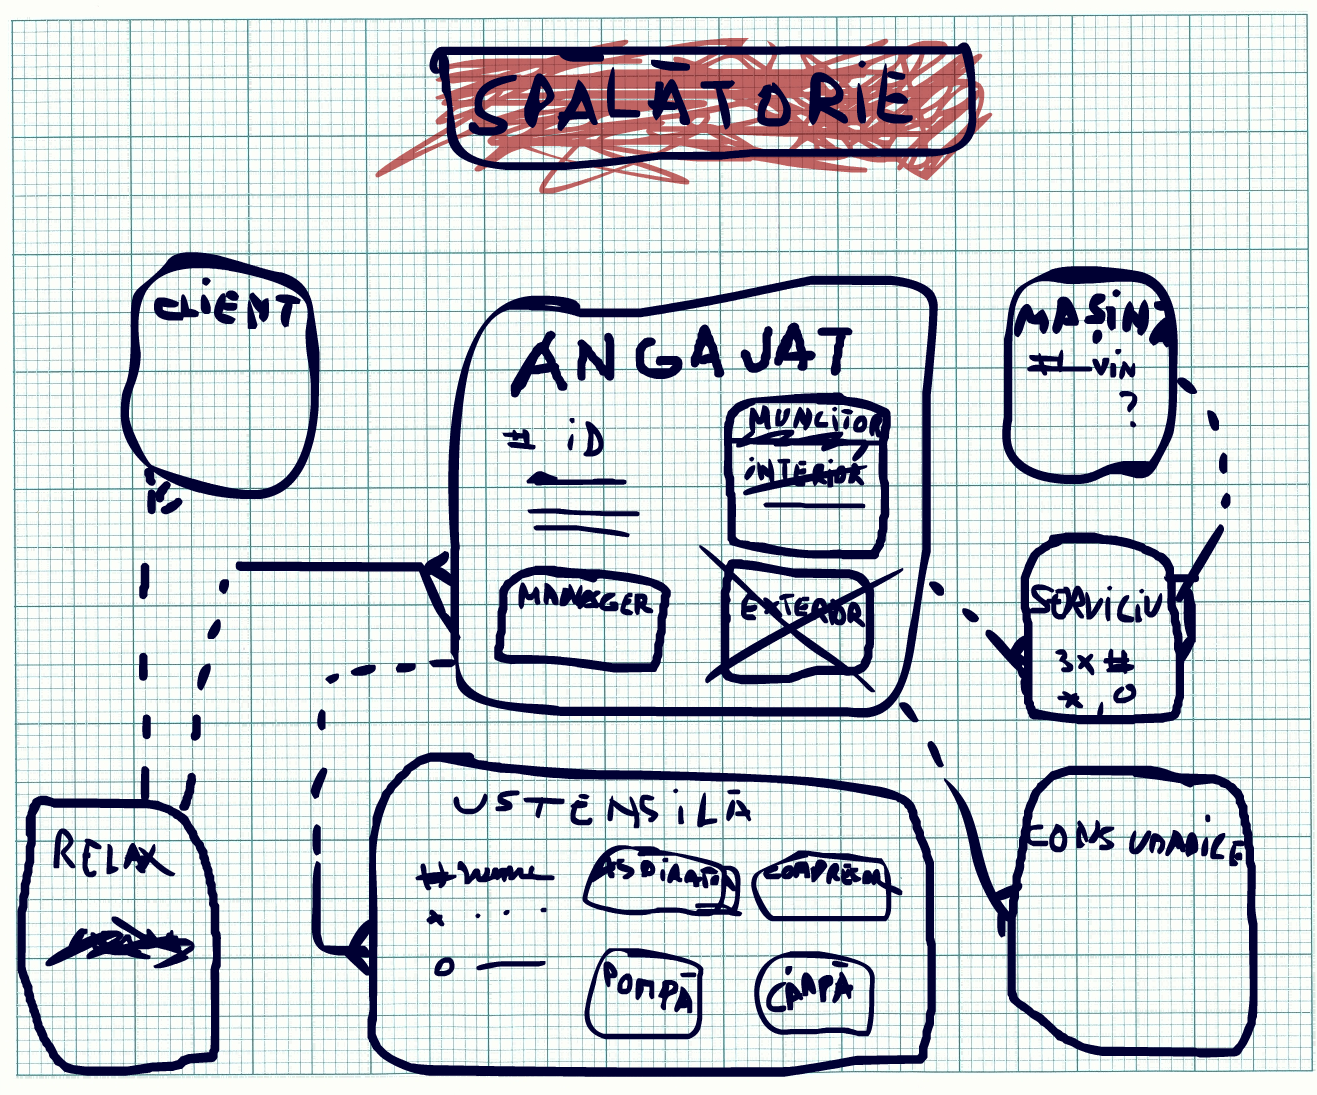 SPALĂTORIE
CLIENT
ANGAJAT
# iD
MUNCITOR
INTERIOR
MANAGER
EXTERIOR
MAȘINĂ
# vin
?
SERVICIU
3x #
* , O
RELAX
USTENSILĂ
# nume
* . . .
o
ASPIRATOR
COMPRESOR
POMPĂ
CÂRPĂ
CONSUMABILE